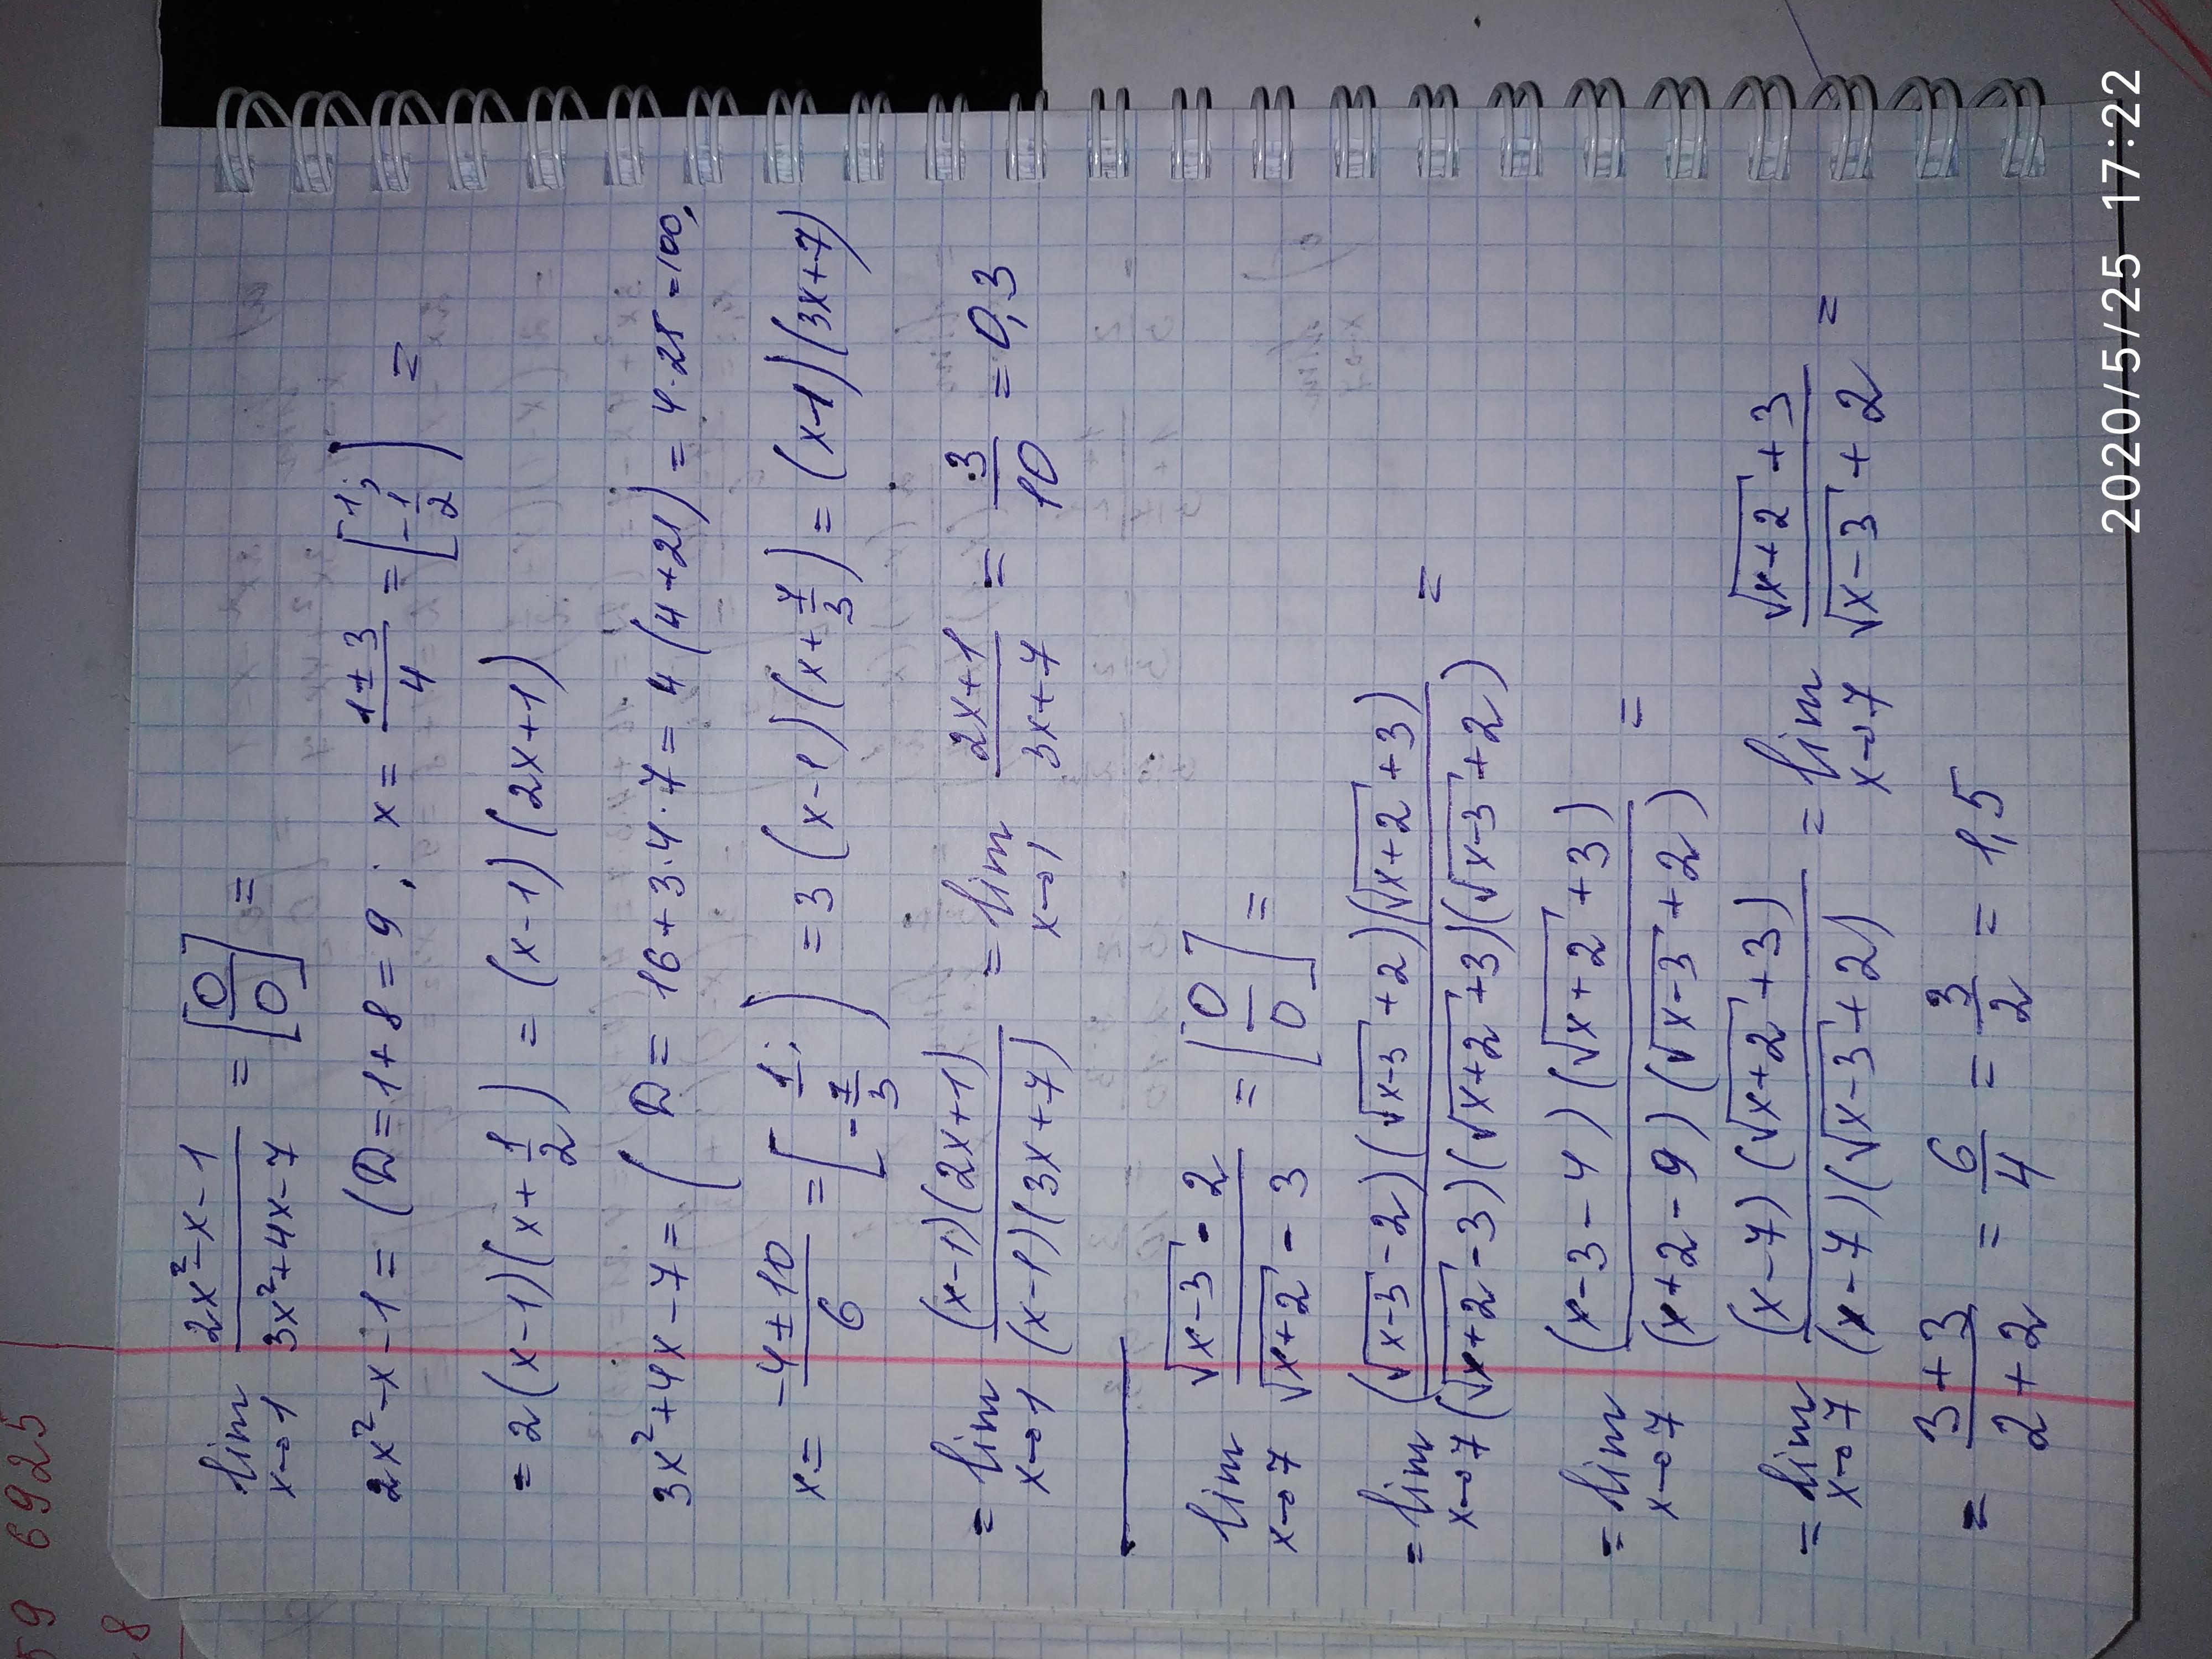 lim x→1 (2x²-x-1)/(3x²+4x-7) = [0/0] =
2x²-x-1 = (D=1+8=9; x = (1±3)/4 = [1; -1/2) =
= 2(x-1)(x+1/2) = (x-1)(2x+1)
3x²+4x-7 = (D = 16+3·4·7 = 4(4+21) = 4·25 = 100,
x = (-4±10)/6 = [1; -7/3) = 3(x-1)(x+7/3) = (x-1)(3x+7)
= lim x→1 ((x-1)(2x+1))/((x-1)(3x+7)) = lim x→1 (2x+1)/(3x+7) = 3/10 = 0,3
lim x→7 (√(x-3) - 2)/(√(x+2) - 3) = [0/0] =
= lim x→7 ((√(x-3) - 2)(√(x-3) + 2)(√(x+2) + 3))/((√(x+2) - 3)(√(x+2) + 3)(√(x-3) + 2)) =
= lim x→7 ((x-3-4)(√(x+2) + 3))/((x+2-9)(√(x-3) + 2)) =
= lim x→7 ((x-7)(√(x+2) + 3))/((x-7)(√(x-3) + 2)) = lim x→7 (√(x+2) + 3)/(√(x-3) + 2) =
= (3+3)/(2+2) = 6/4 = 3/2 = 1,5
59 6925
8
2020/5/25 17:22